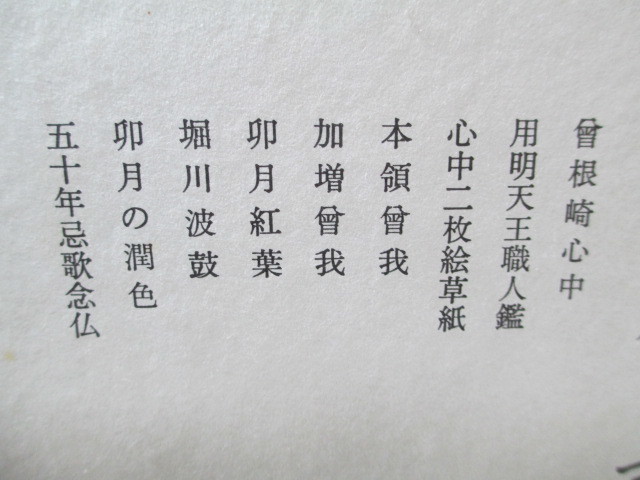 曾根崎心中
用明天王職人鑑
心中二枚絵草紙
本領曾我
加増曾我
卯月紅葉
堀川波鼓
卯月の潤色
五十年忌歌念仏